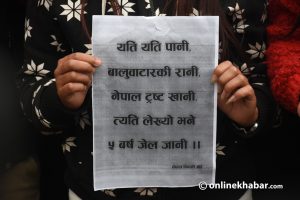 यति यति पानी,
बालुवाटारकी रानी,
नेपाल ट्रष्ट खानी,
त्यति लेख्यो भने
५ बर्ष जेल जानी ।।
onlinekhabar.com